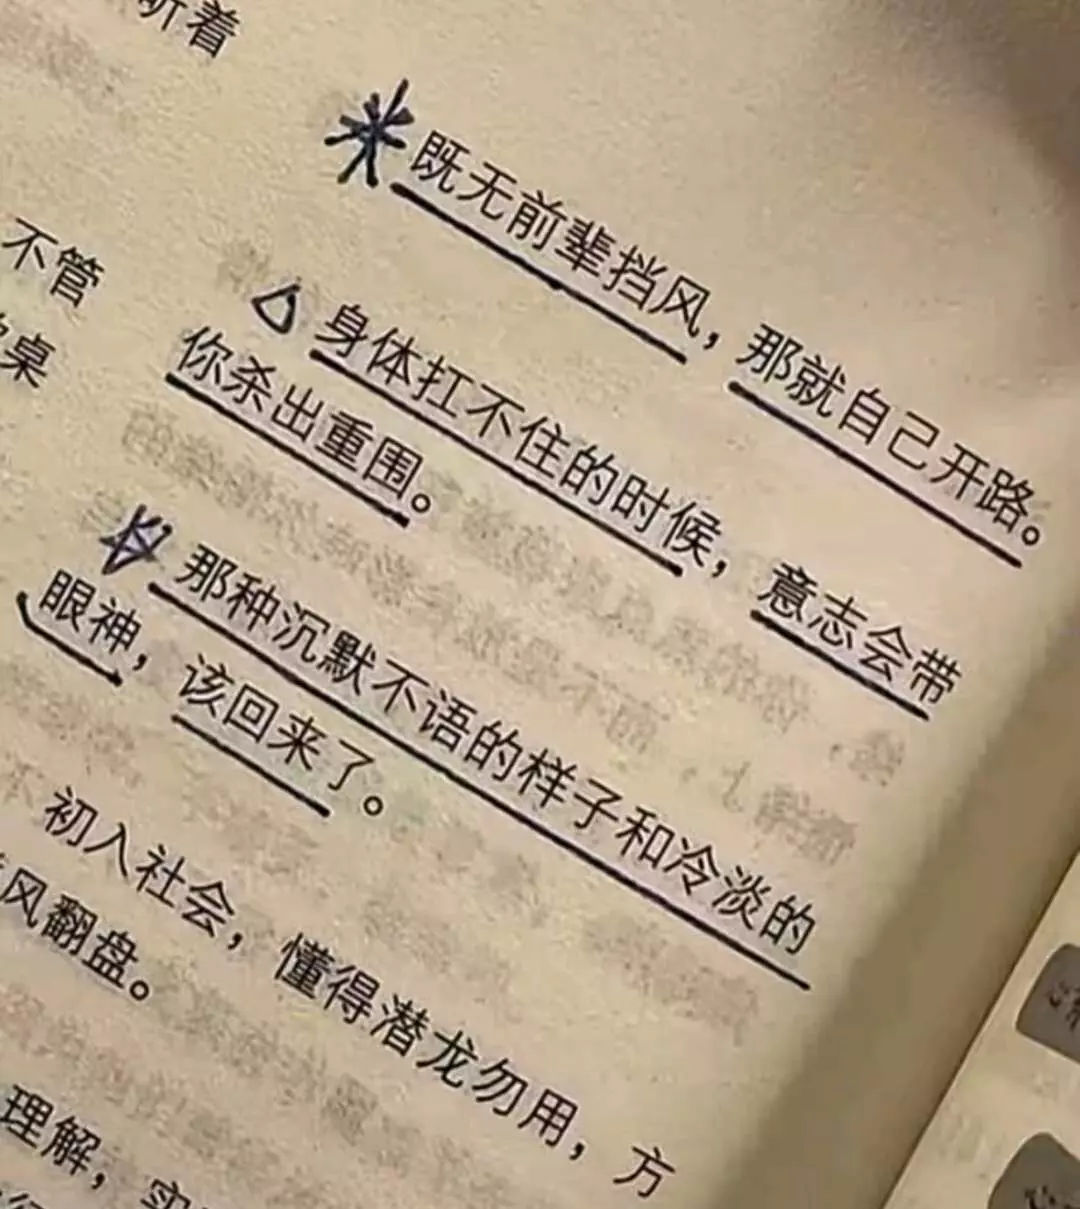 听着
既无前辈挡风，那就自己开路。
不管
身体扛不住的时候，意志会带
桌
你杀出重围。
那种沉默不语的样子和冷淡的
眼神，该回来了。
初入社会，懂得潜龙勿用，方
风翻盘。
理解，实